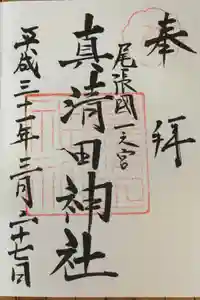 奉拝
尾張國一之宮
真清田神社
平成三十一年三月二十七日